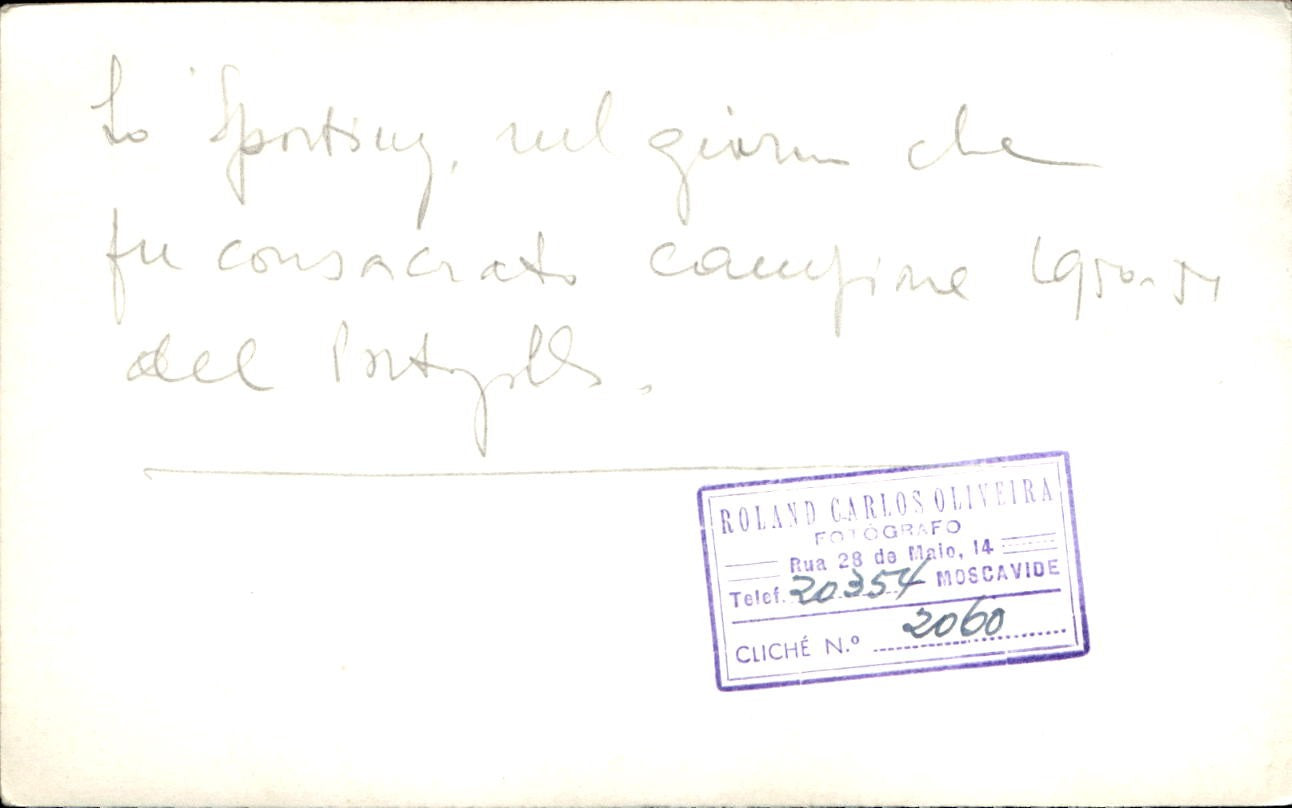 Lo Sporting, nel giorno che
fu consacrato campione 1950-51
del Portogallo.
ROLAND CARLOS OLIVEIRA
FOTÓGRAFO
Rua 28 de Maio, 14
Telef. 20354 MOSCAVIDE
CLICHÉ N.º 2060